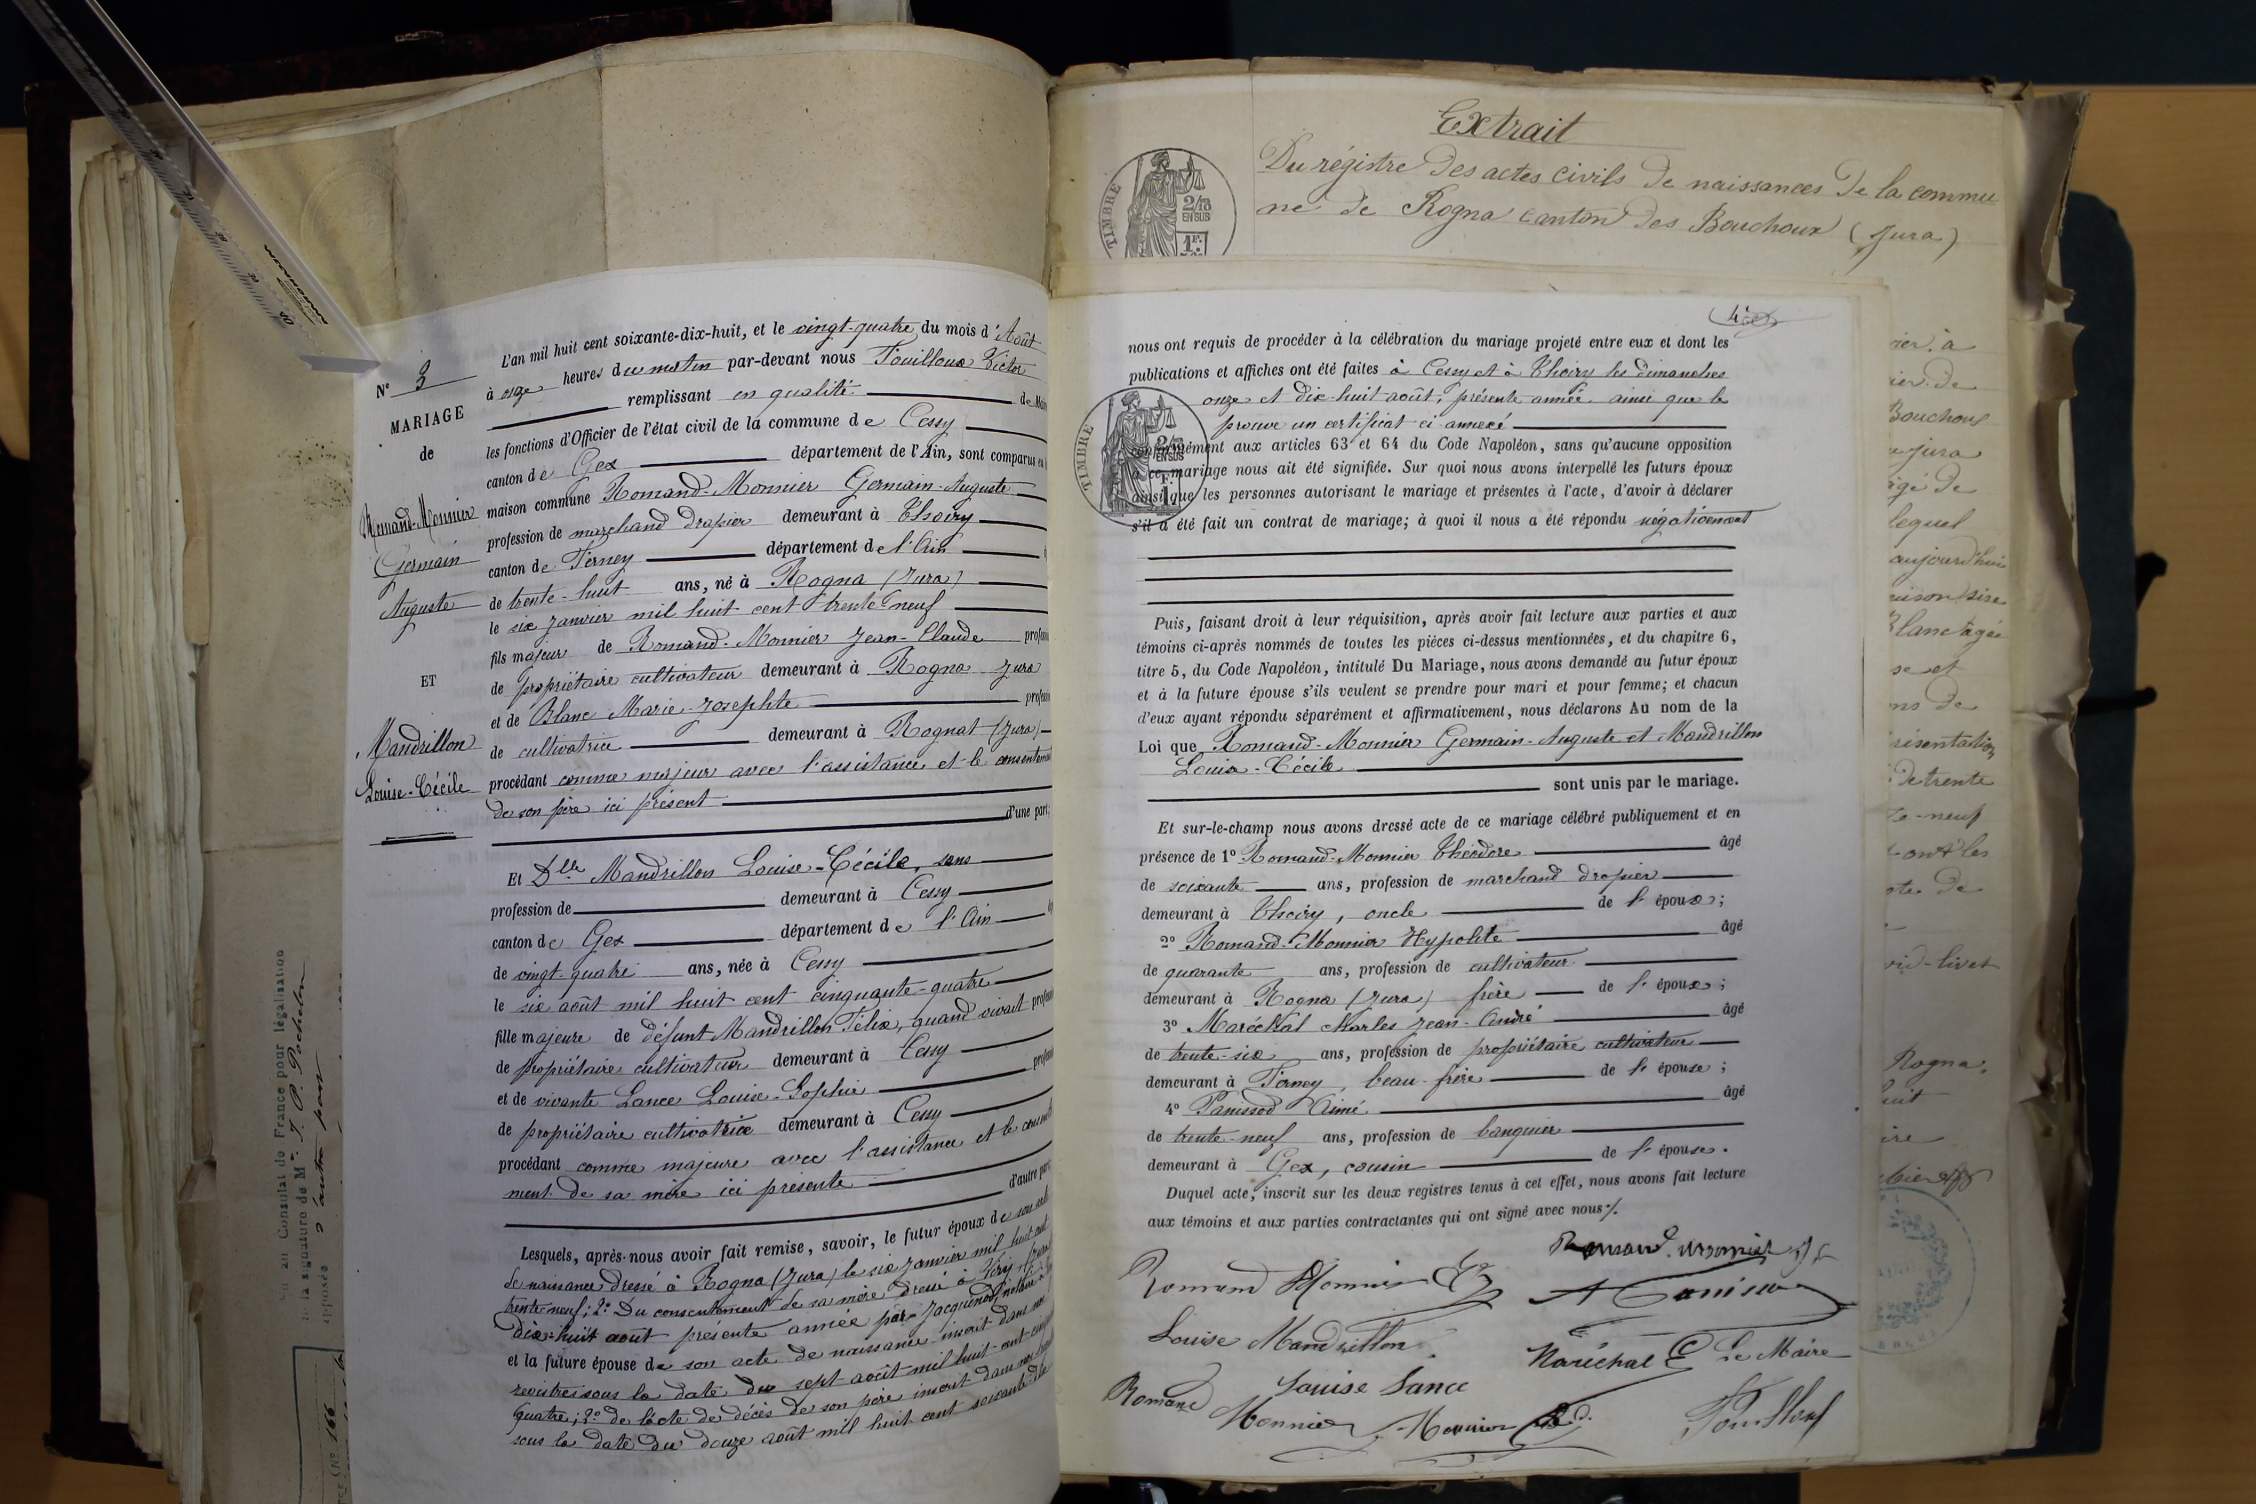 N° 3
MARIAGE
de
Romand-Monnier
Germain
Auguste
ET
Mandrillon
Louise-Cécile
L'an mil huit cent soixante-dix-huit, et le vingt-quatre du mois d'Août
à onze heures du matin par-devant nous Fouilloux Victor
remplissant en qualité de Maire
les fonctions d'Officier de l'état civil de la commune de Cessy
canton de Gex département de l'Ain, sont comparus en la
maison commune Romand-Monnier Germain-Auguste
profession de marchand drapier demeurant à Thoiry
canton de Ferney département de l'Ain
de trente-huit ans, né à Rogna (Jura)
le six janvier mil huit cent trente-neuf
fils majeur de Romand-Monnier Jean-Claude
de propriétaire cultivateur demeurant à Rogna Jura
et de Blanc Marie-Josephte
de cultivatrice demeurant à Rognat (Jura)
procédant comme majeur avec l'assistance et le consentement
de son père ici présent
d'une part;
Et Dlle Mandrillon Louise-Cécile, sans
profession de demeurant à Cessy
canton de Gex département de l'Ain
de vingt-quatre ans, née à Cessy
le six août mil huit cent cinquante-quatre
fille majeure de défunt Mandrillon Félix, quand vivait
de propriétaire cultivateur demeurant à Cessy
et de vivante Lance Louise-Sophie
de propriétaire cultivatrice demeurant à Cessy
procédant comme majeure avec l'assistance et le consente
ment de sa mère ici présente
d'autre part;
Lesquels, après nous avoir fait remise, savoir, le futur époux de son acte
de naissance dressé à Rogna (Jura) le six janvier mil huit cent
trente-neuf; 2° Du consentement de sa mère dressé à Viry (Jura)
dix-huit août présente année par Jacquenod, notaire
et la future épouse de son acte de naissance inscrit dans nos
registres sous la date du sept août mil huit cent cinquante
quatre; 2° de l'acte de décès de son père inscrit dans nos
sous la date du douze août mil huit cent soixante-dix
au Consulat de France pour légalisation
de la signature de M. J. P. Pochelon
apposée d'autre part
N° 166
Extrait
Du régistre des actes civils de naissances de la commu
ne de Rogna canton des Bouchoux (Jura)
TIMBRE
2/10
EN SUS
1F
4
nous ont requis de procéder à la célébration du mariage projeté entre eux et dont les
publications et affiches ont été faites à Cessy et à Thoiry les dimanches
onze et dix-huit août, présente année ainsi que le
prouve un certificat ci annexé
TIMBRE
2/10
EN SUS
conformément aux articles 63 et 64 du Code Napoléon, sans qu'aucune opposition
à ce mariage nous ait été signifiée. Sur quoi nous avons interpellé les futurs époux
ainsi que les personnes autorisant le mariage et présentes à l'acte, d'avoir à déclarer
s'il a été fait un contrat de mariage; à quoi il nous a été répondu négativement
Puis, faisant droit à leur réquisition, après avoir fait lecture aux parties et aux
témoins ci-après nommés de toutes les pièces ci-dessus mentionnées, et du chapitre 6,
titre 5, du Code Napoléon, intitulé Du Mariage, nous avons demandé au futur époux
et à la future épouse s'ils veulent se prendre pour mari et pour femme; et chacun
d'eux ayant répondu séparément et affirmativement, nous déclarons Au nom de la
Loi que Romand-Monnier Germain-Auguste et Mandrillon
Louise-Cécile
sont unis par le mariage.
Et sur-le-champ nous avons dressé acte de ce mariage célébré publiquement et en
présence de 1° Romand-Monnier Théodore âgé
de soixante ans, profession de marchand drapier
demeurant à Thoiry, oncle de l'époux;
2° Romand-Monnier Hypolite âgé
de quarante ans, profession de cultivateur
demeurant à Rogna (Jura) frère de l'époux;
3° Maréchal Charles Jean-André âgé
de trente-six ans, profession de propriétaire cultivateur
demeurant à Ferney, beau-frère de l'épouse;
4° Panissod Aimé âgé
de trente-neuf ans, profession de banquier
demeurant à Gex, cousin de l'épouse.
Duquel acte, inscrit sur les deux registres tenus à cet effet, nous avons fait lecture
aux témoins et aux parties contractantes qui ont signé avec nous.
Romand. Monnier
Romand Monnier
Louise Mandrillon
Maréchal C Le Maire
Louise Lance
Romand
Monnier Monnier
Bouchoux
Jura
âgé de
lequel
aujourd'hui
maison sise
Blanc âgée
se et
présentation
De trente
Rogna,